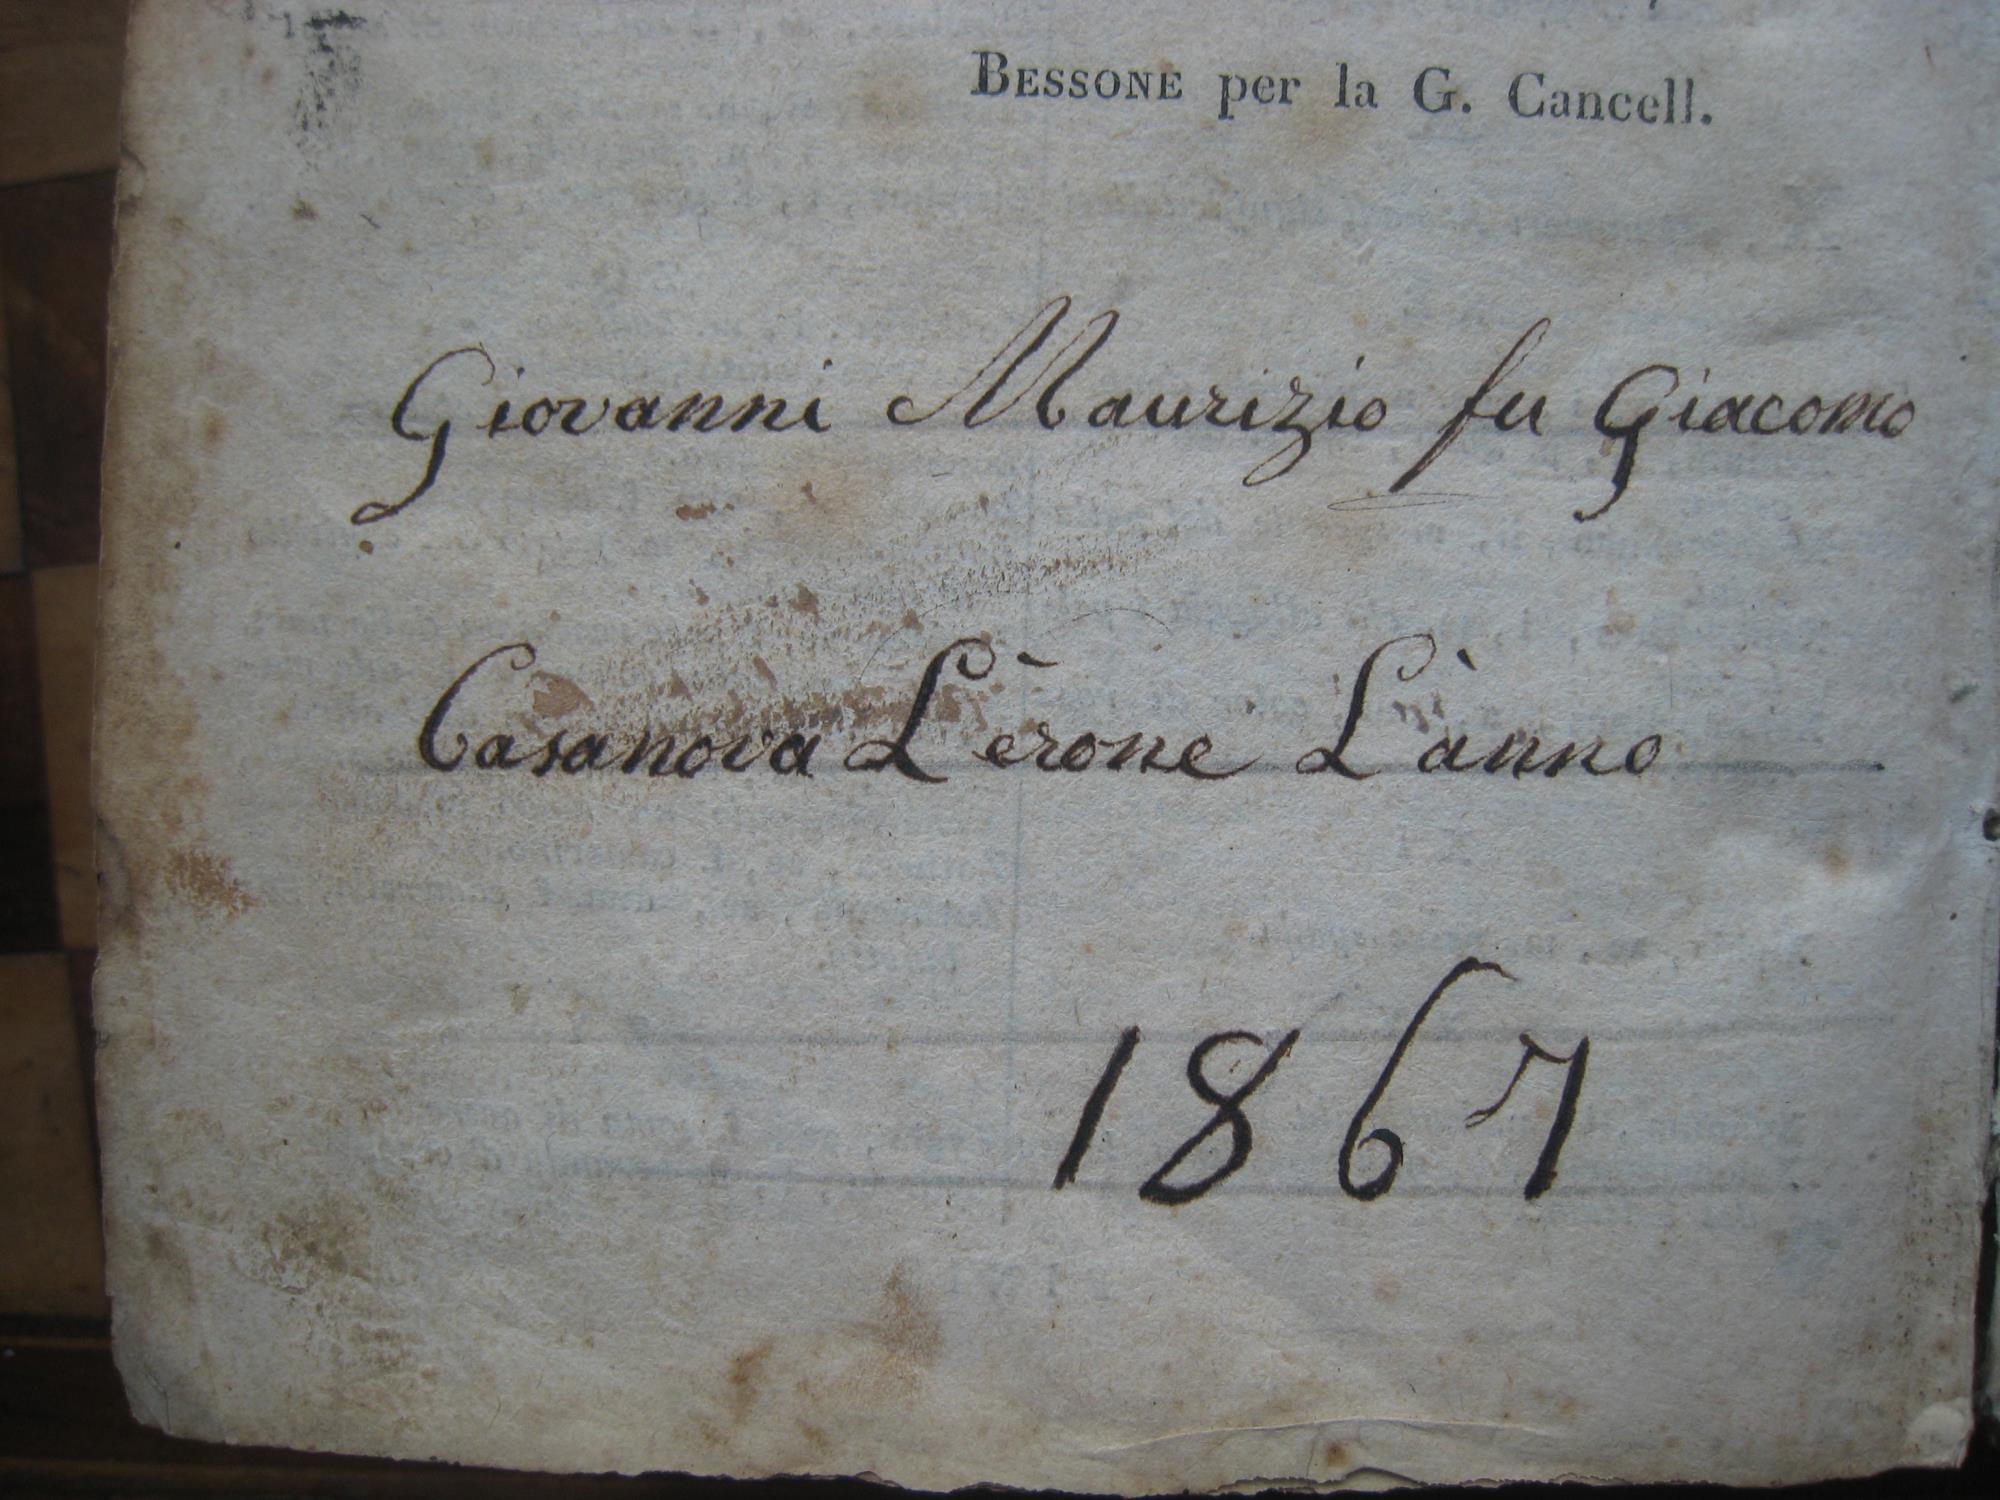 BESSONE per la G. Cancell.
Giovanni Maurizio fu Giacomo
Casanova Lèrone Lànno
1867